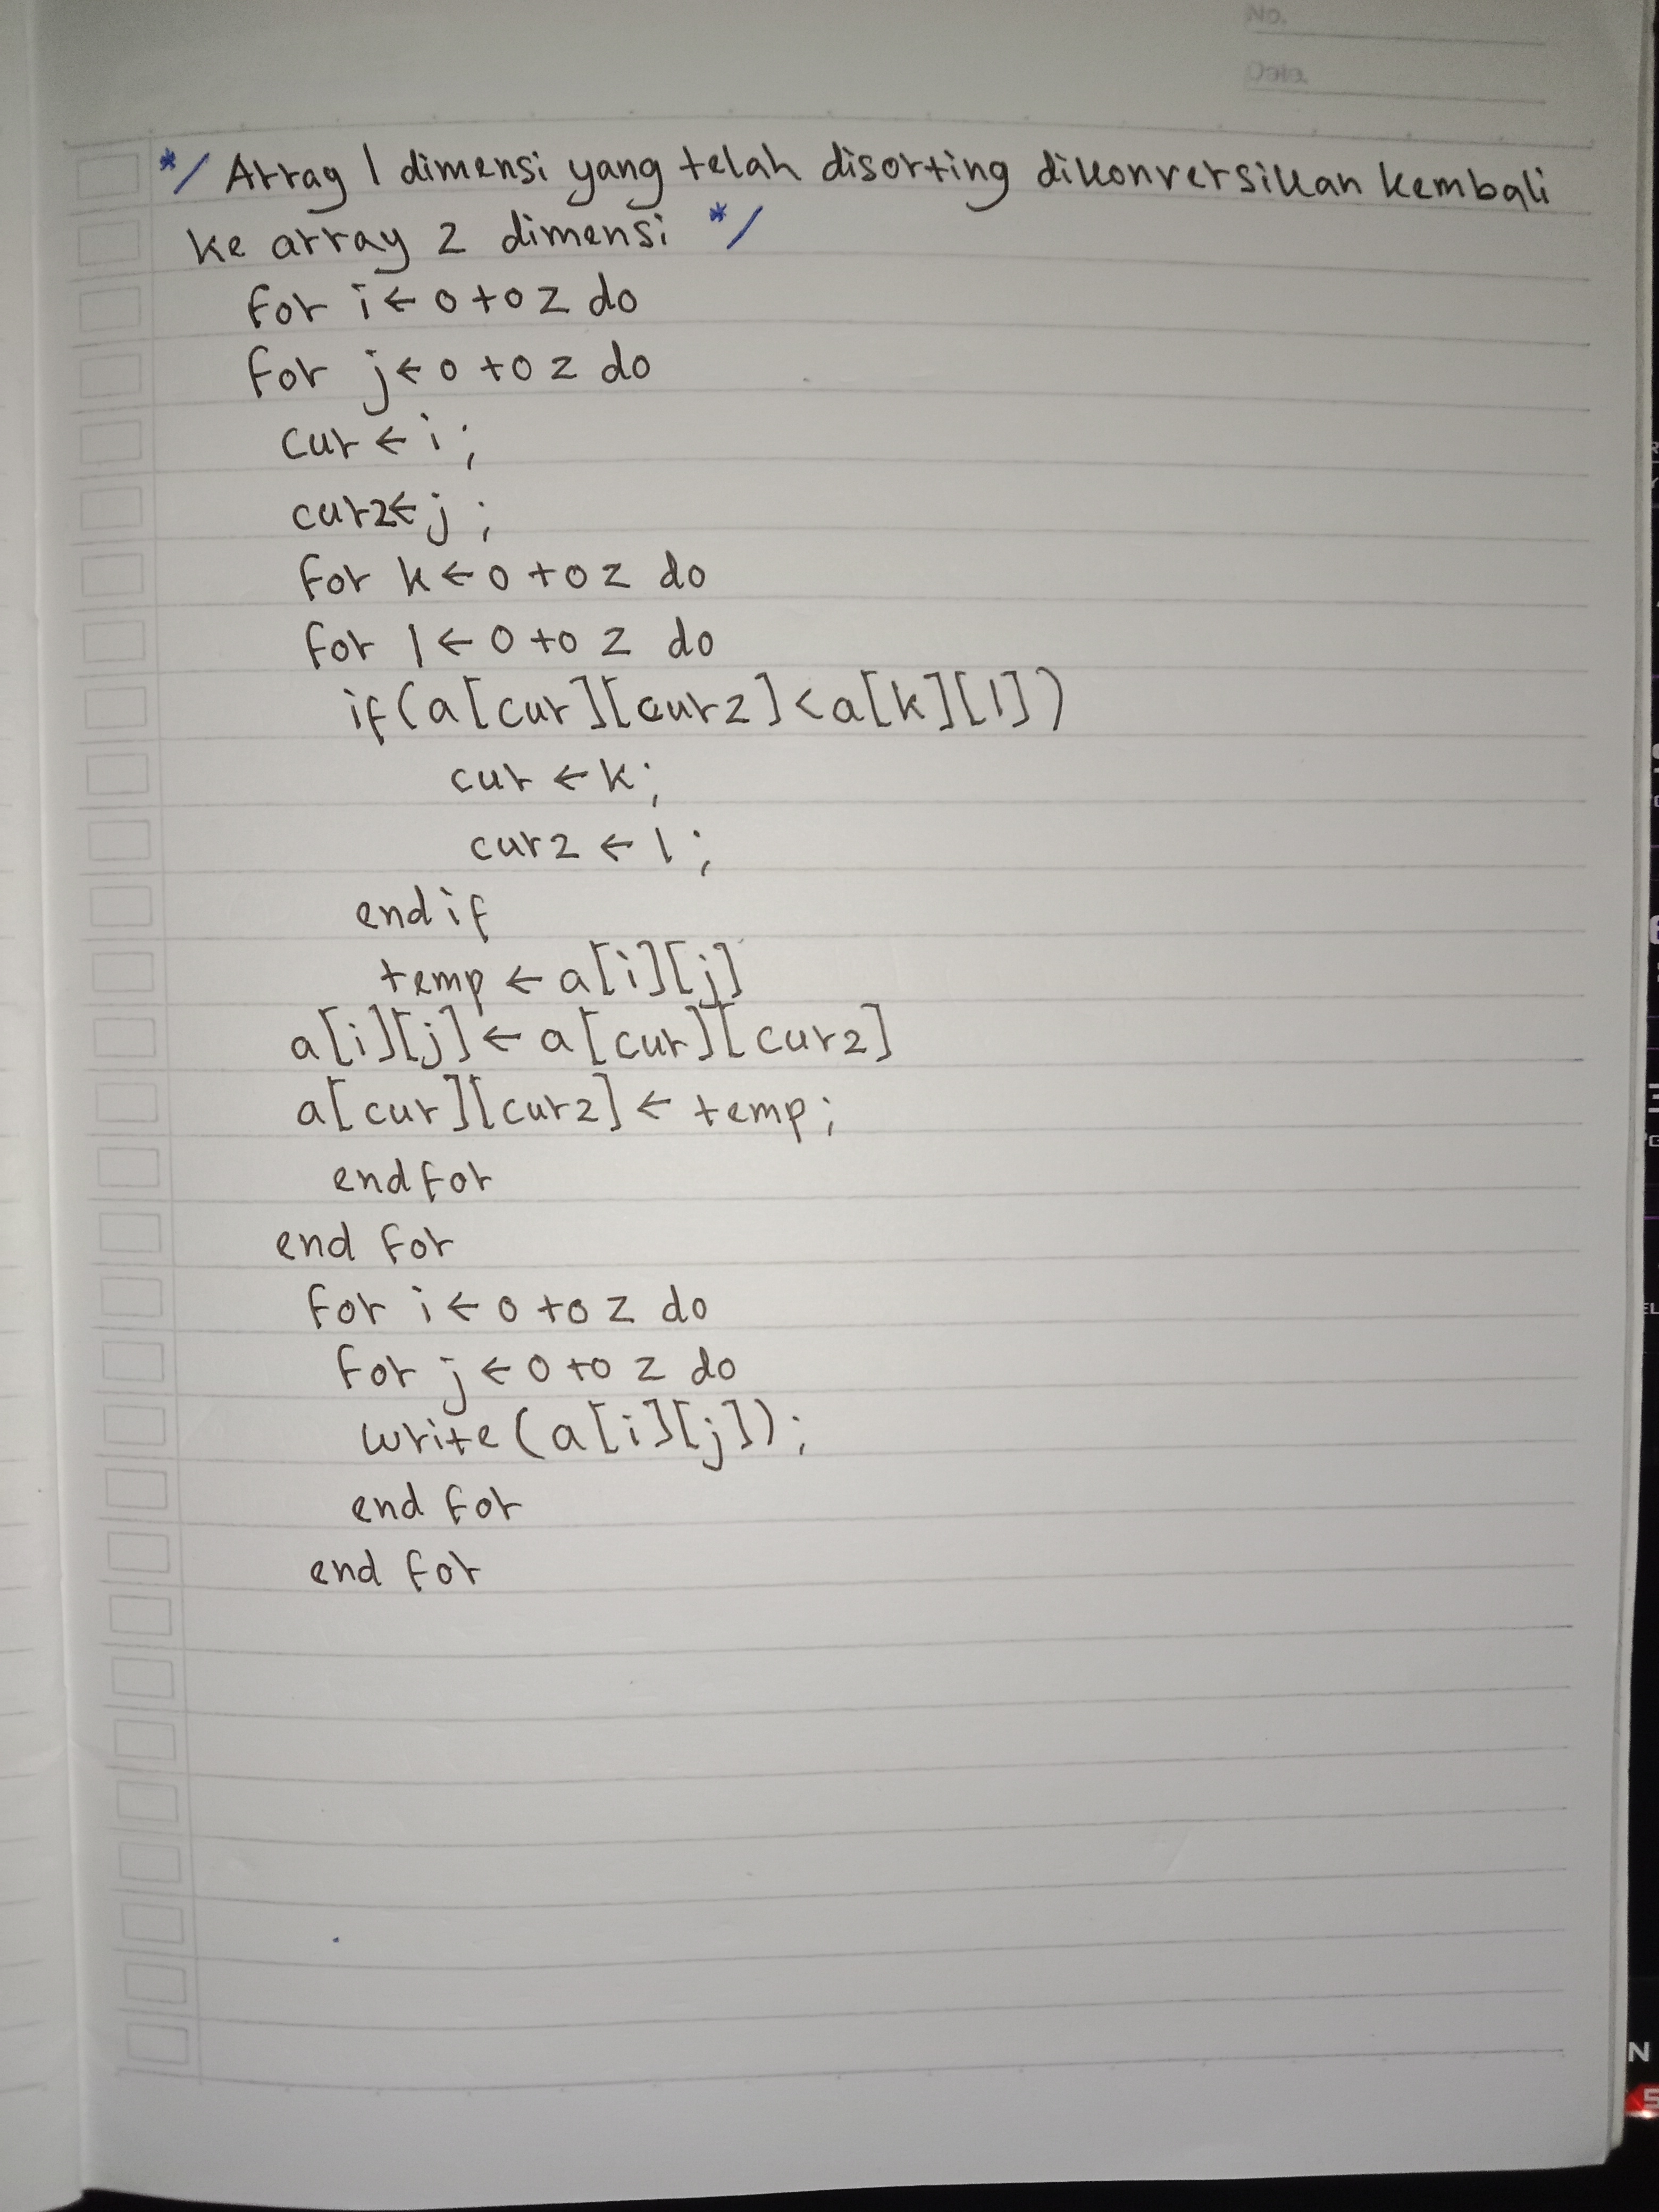 No.
Date.
*/ Array 1 dimensi yang telah disorting dikonversikan kembali
ke array 2 dimensi */
for i ← 0 to 2 do
for j ← 0 to 2 do
cur ← i ;
cur2 ← j ;
for k ← 0 to 2 do
for l ← 0 to 2 do
if (a[cur][cur2] < a[k][l])
cur ← k ;
cur2 ← l ;
end if
temp ← a[i][j]
a[i][j] ← a[cur][cur2]
a[cur][cur2] ← temp ;
end for
end for
for i ← 0 to 2 do
for j ← 0 to 2 do
write (a[i][j]) ;
end for
end for